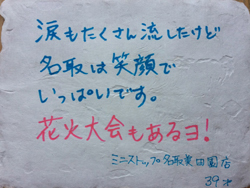 涙もたくさん流したけど
名取は笑顔で
いっぱいです。
花火大会もあるヨ!
ミニストップ名取美田園店
39才